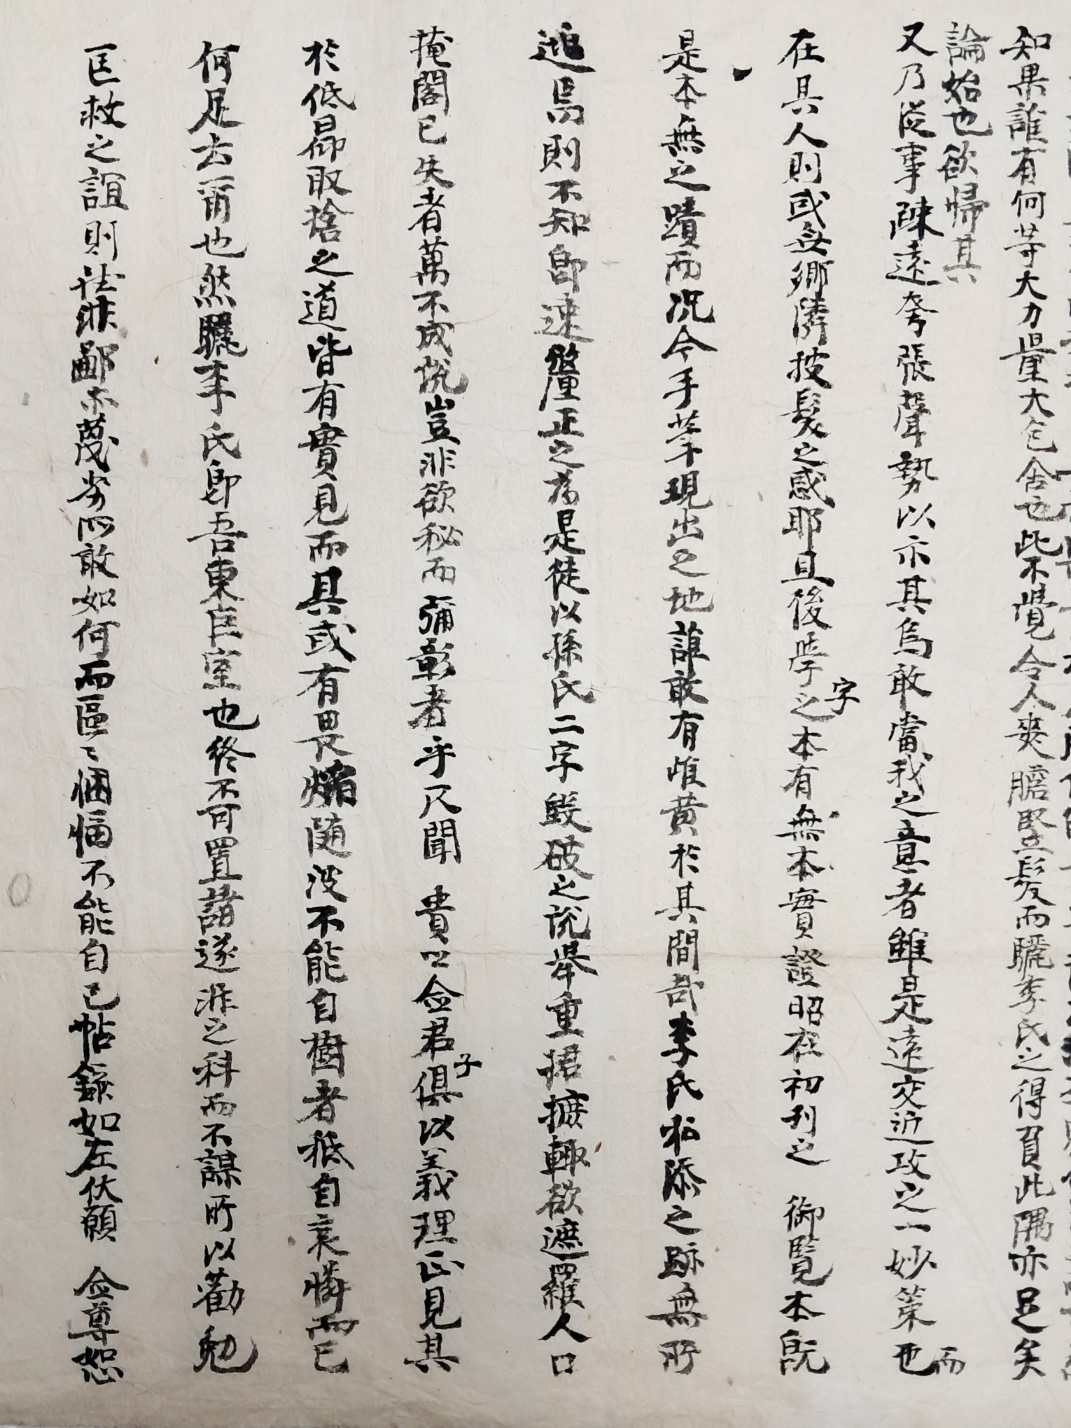 知果誰有何等大力量大包舍也此不覺令人爽膽竪髮而驪李氏之得買此隅亦足矣
論始也欲歸其
又乃從事疎遠夸張聲勢以示其烏敢當我之意者雖是遠交近攻之一妙策也
而
在具人則或無鄉隣披髮之感耶且後學之本有無本實證昭在初刊之 御覽本既
字
是本無之蹟而况今手筆現出之地誰敢有雌黃於其間哉李氏私添之跡無所
逃焉則不知卽速釐正之爲是徒以孫氏二字毀破之說擧重捃摭輒欲遮羅人口
掩閣已失者萬不成說豈非欲秘而彌彰者乎尺聞 貴公僉君俱以義理正見其
子
於低昻取捨之道皆有實見而具或有畏焰随波不能自樹者秪自哀憐而已
何足云爾也然驪李氏卽吾東巨室也終不可置諸遂非之科而不謀所以勸勉
匡救之誼則法非鄙亦蔑劣所敢如何而區々悃愊不能自已帖錄如左伏願 僉尊恕